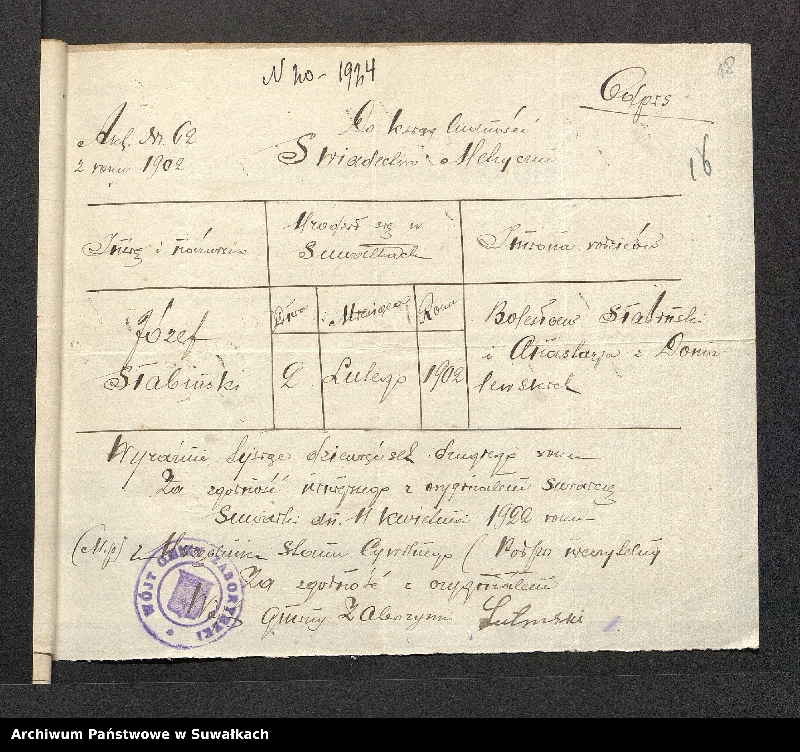 N 20 - 1924
18
Odpis
16
Akt. Nr. 62
z roku 1902
Do ksiąg ludności
Świadectwo Metryczne
Imię i nazwisko
Urodził się w
Suwałkach
Imiona rodziców
Dnia
Miesiąca
Roku
Józef
Słabiński
2
Lutego
1902
Bolesław Słabiński
i Anastazja z Doma
lewskich
Wyraźnie tysiąc dziewięćset drugiego roku
Za zgodność niniejszego z oryginałem świadczę
Suwałki dn. 11 kwietnia 1922 roku
(M.p) z. Urzędnika Stanu Cywilnego (Podpis nieczytelny
Za zgodność z oryginałem
Wójt Gminy Zaboryszki
WÓJT GMINY ZABORYSZKI
Archiwum Państwowe w Suwałkach